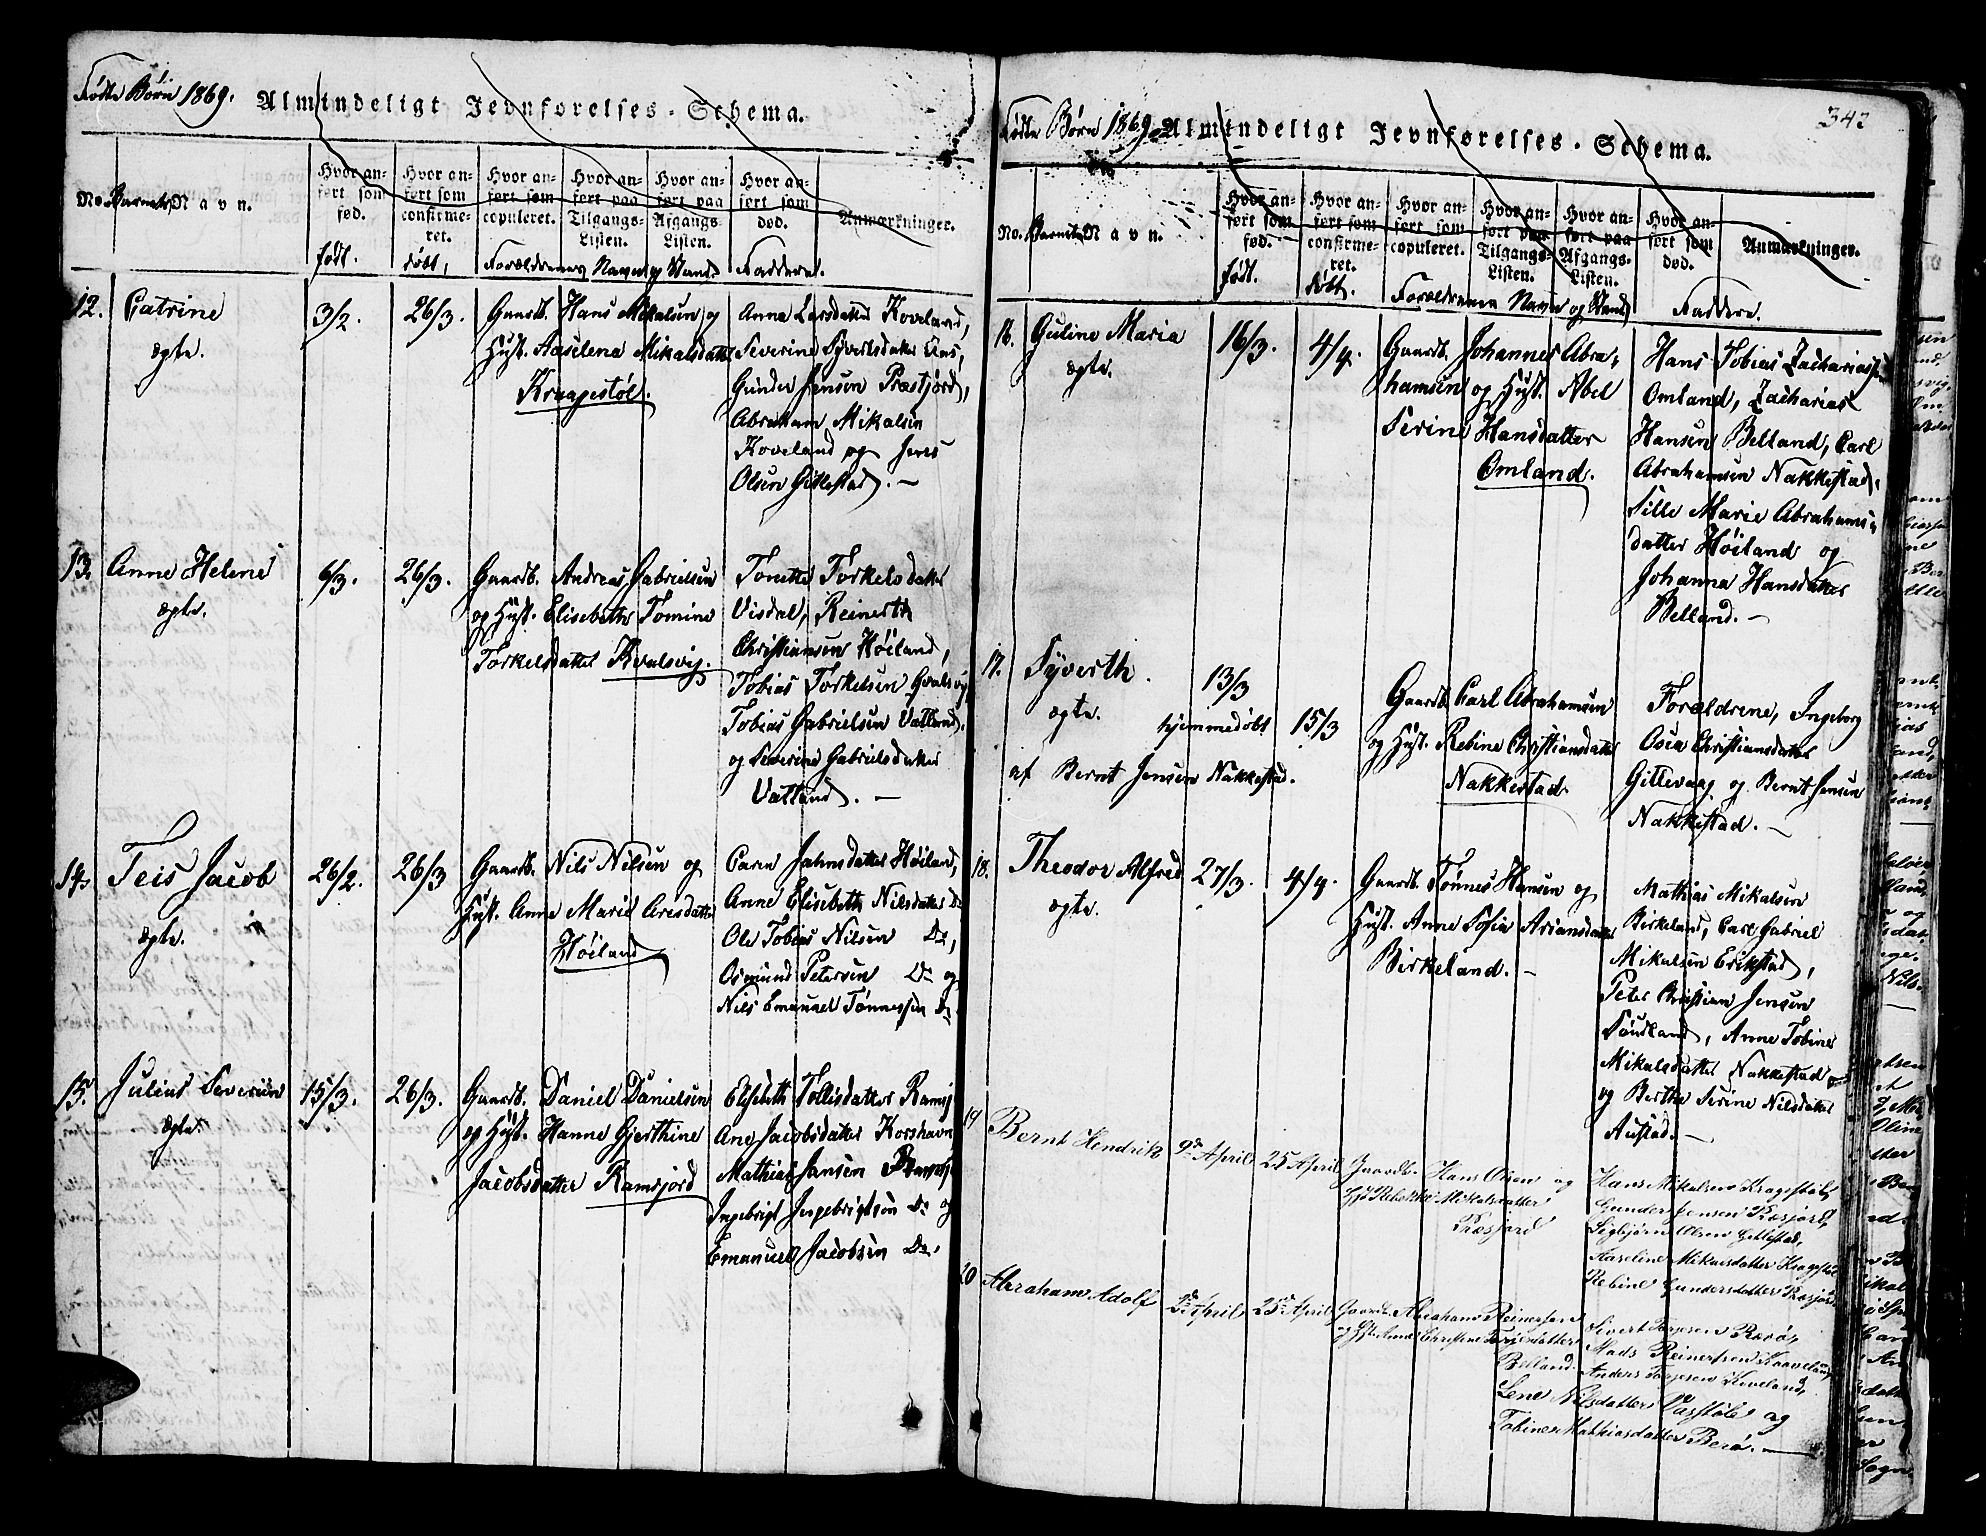 Fødte Børn 1869.
Almindeligt Jevnførelses-Schema.
No. Barnets Navn.
Hvor anført som fød.
Hvor anført som confirmeret.
Hvor anført som copuleret.
Hvor anført paa Tilgangs-Listen.
Hvor anført paa Afgangs-Listen.
Hvor anført som død.
Anmærkninger.
født. døbt. Forældrenes Navne og Stand. Faddere.
12. Catrine 3/2. 26/3. Gaardb. Hans Mikalsen og Anna Larsdatter Koveland,
ægte. Hust. Aaselena Mikalsdatter Severine Syvertsdatter Aas,
Kragestøl. Gunder Jensen Præstjord,
Abraham Mikalsen
Koveland og Jens
Olsen Gitlestad. —
13. Anne Helene 6/3. 26/3. Gaardb. Andreas Gabrielsen Tonette Torkelsdatter
ægte. og Hust. Elisebeth Tomine Visdal, Reinerth
Torkelsdatter Kvalsvig. Christiansen Høiland,
Tobias Torkelsen Qvalsvig,
Tobias Gabrielsen Vatland
og Severine Gabrielsdatter
Vatland. —
14. Teis Jacob 26/2. 26/3 Gaardb. Nils Nilsen og Caren Jahnsdatter Høiland,
ægte. Hust. Anne Marie Aresdatter Anne Elisebeth Nilsdatter Do
Høiland Ole Tobias Nilsen Do,
Osmund Petersen Do og
Nils Emanuel Tønnessen Do
15. Julius Severin 15/3. 26/3. Gaardb. Daniel Danielsen Elisebeth Tollisdatter Ramsj
ægte. og Hust. Hanne Gjerthine Ane Jacobsdatter Korshavn
Jacobsdatter Ramsjord Mathias Jansen Ramsj
Ingebrigt Ingebrigtsen Do og
Emanuel Jacobsen Do.
Fødte Børn 1869.
Almindeligt Jevnførelses-Schema.
343
No. Barnets Navn.
Hvor anført som fød.
Hvor anført som confirmeret.
Hvor anført som copuleret.
Hvor anført paa Tilgangs-Listen.
Hvor anført paa Afgangs-Listen.
Hvor anført som død.
Anmærkninger.
født. døbt. Forældrenes Navne og Stand Faddere.
16. Guline Maria 16/3. 4/4. Gaardb. Johannes Abra- Hans Tobias Zachariassen
ægte. hamsen og Hust. Abel Omland, Zacharias
Serine Hansdatter Hansen Belland, Carl
Omland. Abrahamsen Nakkestad,
Sille Marie Abrahams-
datter Høiland og
Johanna Hansdatter
Belland. —
17. Syverth 13/3 Gaardb. Carl Abrahamsen Forældrene, Ingeborg
ægte. hjemmedøbt 15/3 og Hust. Rebine Christiansdatter Osea Christiansdatter
af Bernt Jensen Nakkestad. Nakkestad. Gittevaag og Bernt Jensen
Nakkestad. —
18. Theodor Alfred 27/3. 4/4. Gaardb. Tønnes Hansen og Mathias Mikalsen
ægte. Hust. Anne Sofia Ariansdatter Birkeland, Carl Gabriel
Birkeland. — Mikalsen Erikstad,
Peter Christian Jensen
Søudland, Anne Tobine
Mikalsdatter Nakkestad
og Berthe Serine Nilsdatter
Austad. —
19 Bernt Hendrik 9de April 25 April Gaardb. Hans Olsen og Hans Mikalsen Kragestøl,
Hst Rebekke Mikalsdatter Gunder Jensen Ræsjord,
Ræsjord Sigbjørn Olsen Gitlestad,
Aaseline Mikalsdatter Kragestøl
Rebine Gundersdatter Ræsjord
20 Abraham Adolf 2de April 25de April Gaardb. Abraham Reinertsen Sivert Torjesen Rærø,
og Hst Christine Torjesdatter Mads Reinertsen Kaaveland,
Belland. Anders Torjesen Koveland,
Lene Nilsdatter Varstøle og
Tobine Mathiasdatter Berø. —